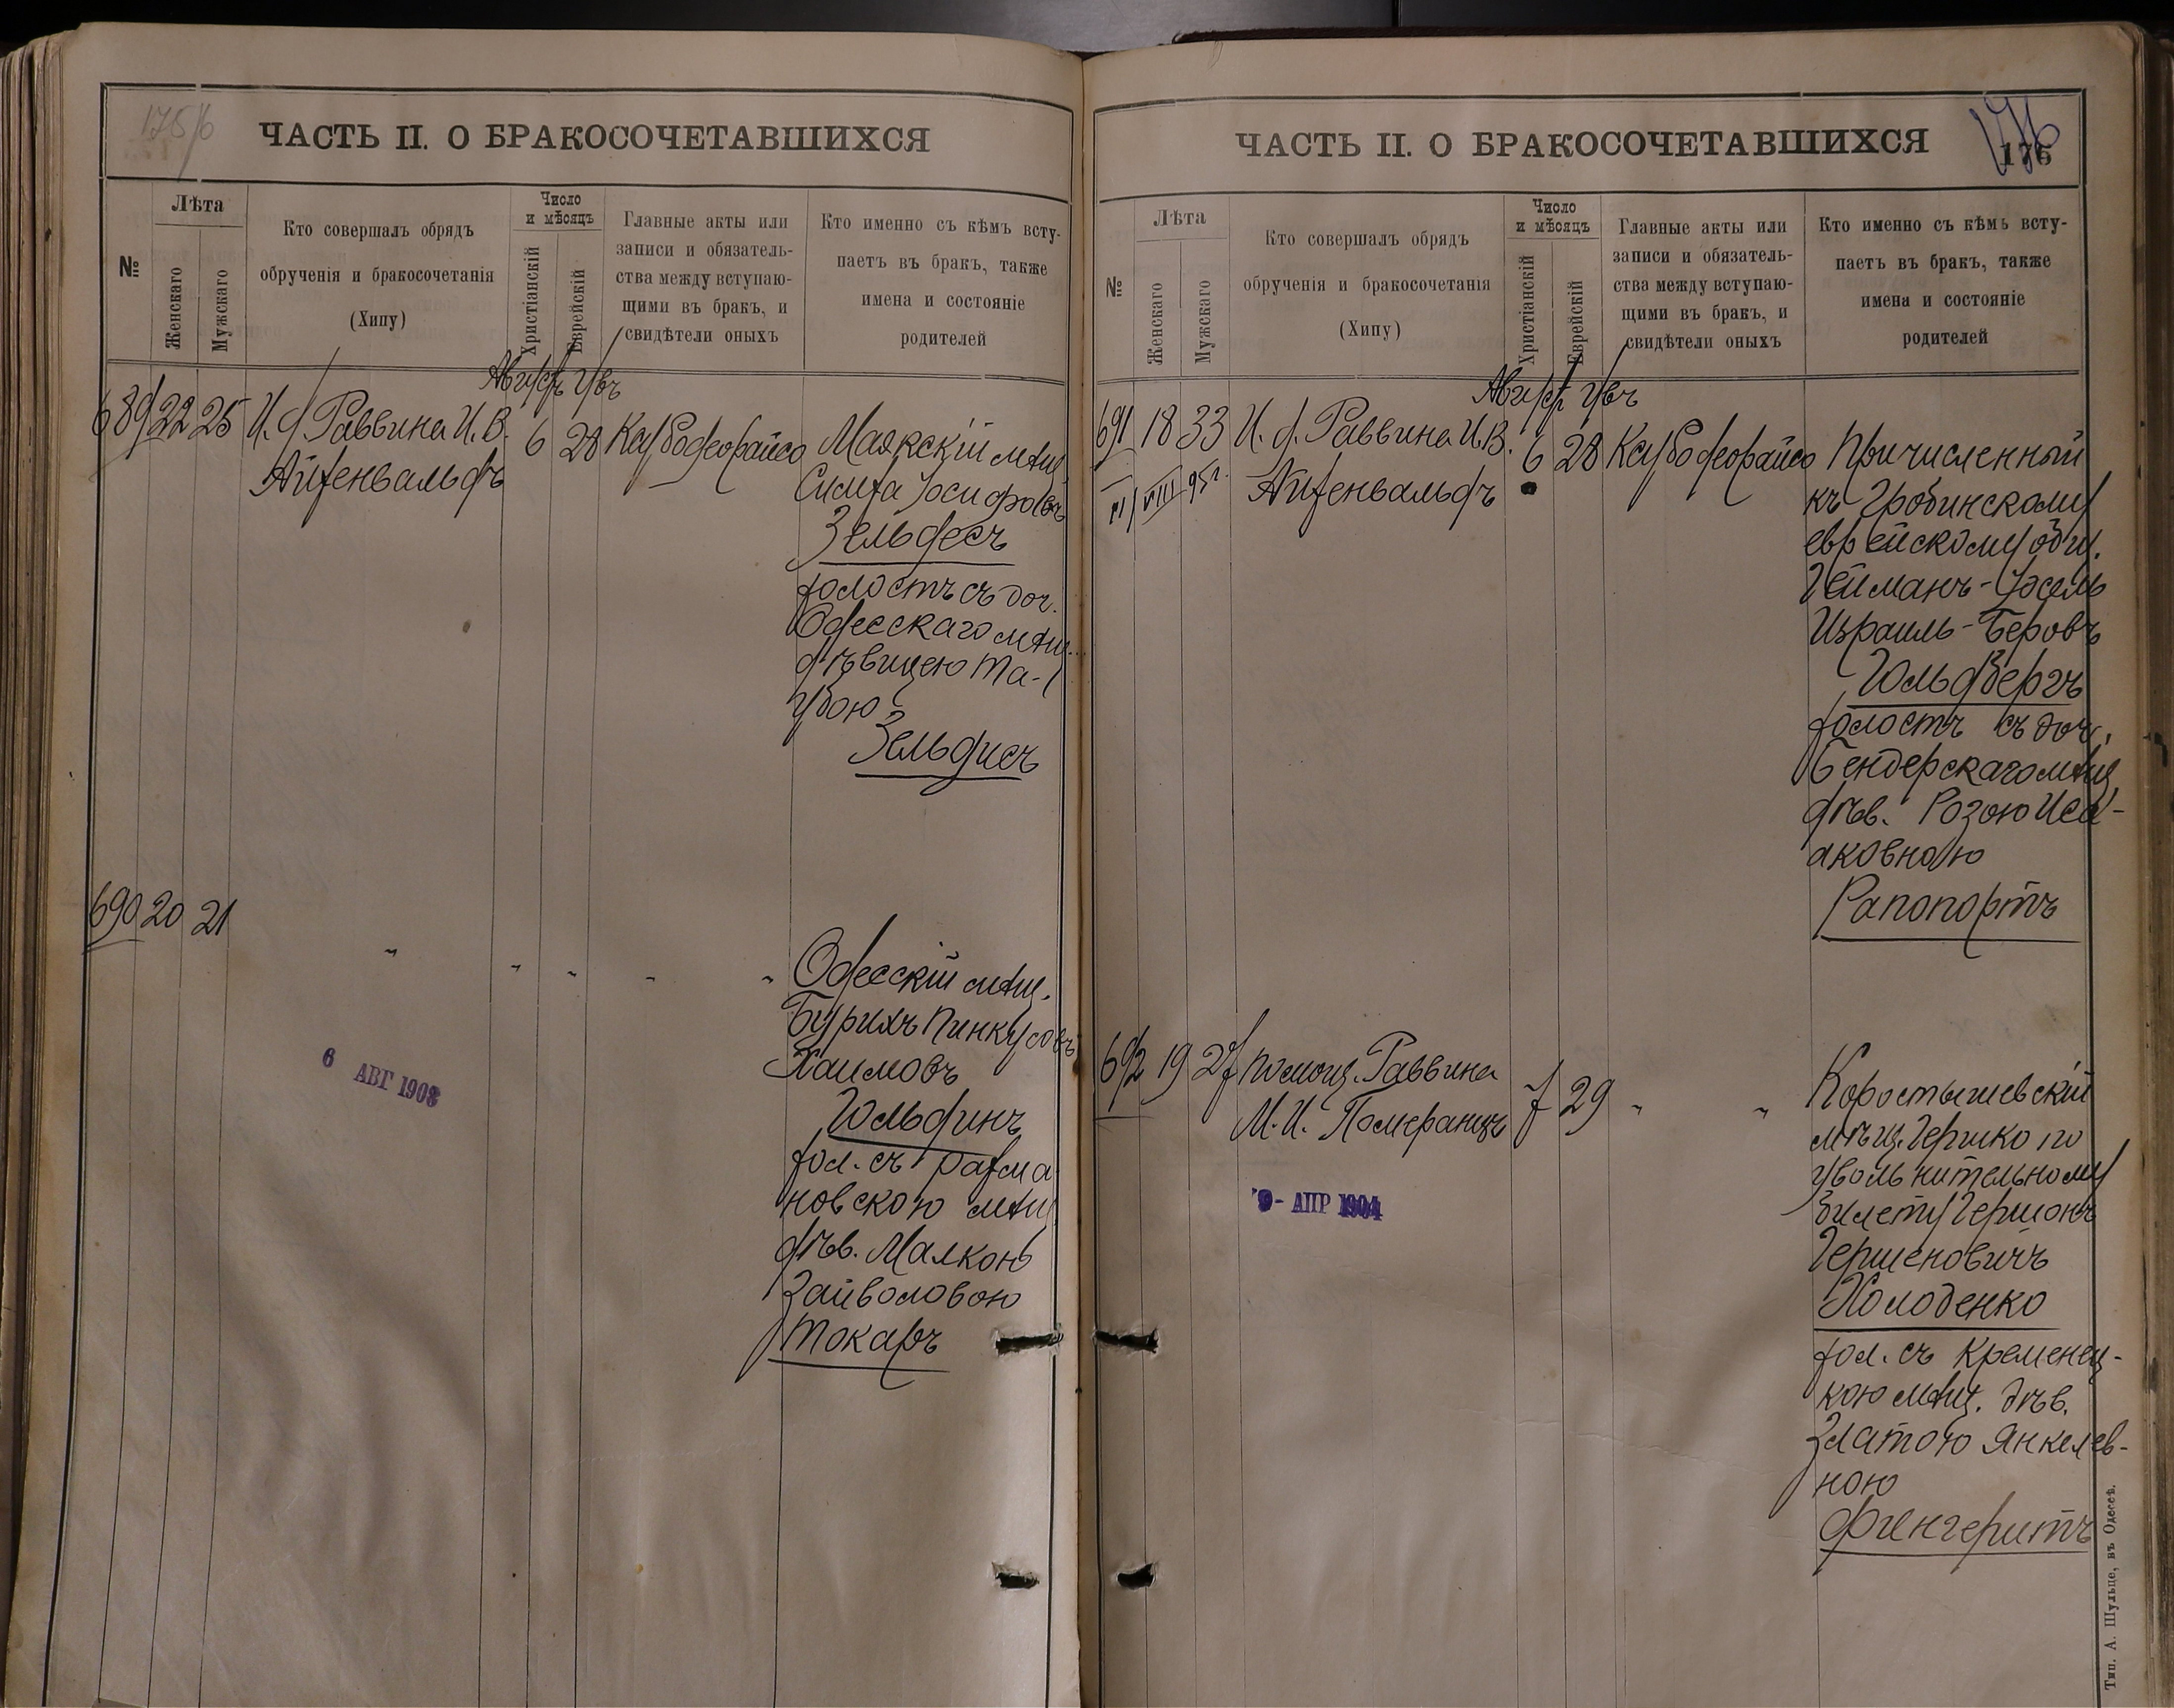 175/б
ЧАСТЬ II. О БРАКОСОЧЕТАВШИХСЯ
№
Лѣта
Женскаго
Мужскаго
Кто совершалъ обрядъ
обрученія и бракосочетанія
(Хипу)
Число
и мѣсяцъ
Христіанскій
Еврейскій
Главные акты или
записи и обязатель-
ства между вступаю-
щими въ бракъ, и
свидѣтели оныхъ
Кто именно съ кѣмъ всту-
паетъ въ бракъ, также
имена и состояніе
родителей
689 22 25 И. д. Раввина И. В. 6 28
Айзенвальдъ
Маякскій мѣщ.
Симха Іосифовъ
Зельдесъ
холостъ съ доч.
Одесскаго мѣщ.
дѣвицею Та-
убою
Зельдисъ
690 20 21 " " " " "
Одесскій мѣщ.
Бурихъ Пинкусовъ
Хаимовъ
Гольдинъ
хол. съ рахма
новскою мѣщ
дѣв. Малкою
Зайволовою
Токаръ
6 АВГ 1903
ЧАСТЬ II. О БРАКОСОЧЕТАВШИХСЯ
176
176
№
Лѣта
Женскаго
Мужскаго
Кто совершалъ обрядъ
обрученія и бракосочетанія
(Хипу)
Число
и мѣсяцъ
Христіанскій
Еврейскій
Главные акты или
записи и обязатель-
ства между вступаю-
щими въ бракъ, и
свидѣтели оныхъ
Кто именно съ кѣмъ всту-
паетъ въ бракъ, также
имена и состояніе
родителей
691 18 33 И. д. Раввина И. В. 6 28
Айзенвальдъ
Причисленный
къ Гробинскому
еврейскому общ.
Гейманъ-Іосель
Израиль-Беровъ
Гольдбергъ
холостъ съ доч.
Бендерскаго мѣщ
дѣв. Розою Иса-
аковною
Рапопортъ
692 19 27 помощ. Раввина 7 29 " "
М. И. Померанцъ
9 - АПР 1904
Коростышевскій
мѣщ. Гершко по
увольнительному
билету Гершонъ
Гершеновичъ
Холоденко
хол. съ Кременец-
кою мѣщ. дѣв.
Златою Янкелев-
ною
Фингеритъ
Тип. А. Шульце, въ Одессѣ.